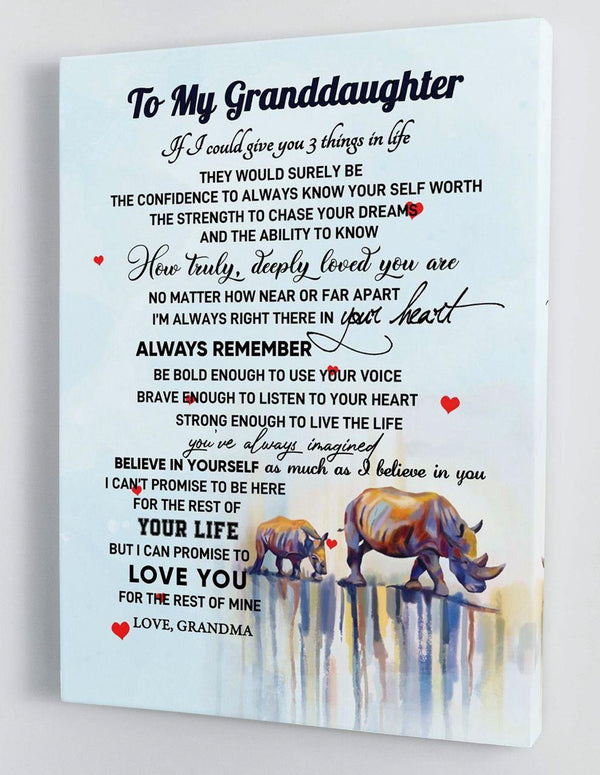 To My Granddaughter
If I could give you 3 things in life
THEY WOULD SURELY BE
THE CONFIDENCE TO ALWAYS KNOW YOUR SELF WORTH
THE STRENGTH TO CHASE YOUR DREAMS
AND THE ABILITY TO KNOW
How truly, deeply loved you are
NO MATTER HOW NEAR OR FAR APART
I'M ALWAYS RIGHT THERE IN your heart
ALWAYS REMEMBER
BE BOLD ENOUGH TO USE YOUR VOICE
BRAVE ENOUGH TO LISTEN TO YOUR HEART
STRONG ENOUGH TO LIVE THE LIFE
you've always imagined
BELIEVE IN YOURSELF as much as I believe in you
I CAN'T PROMISE TO BE HERE
FOR THE REST OF
YOUR LIFE
BUT I CAN PROMISE TO
LOVE YOU
FOR THE REST OF MINE
LOVE, GRANDMA